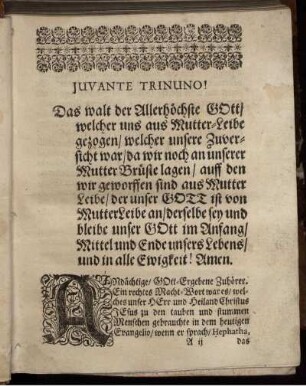 JUVANTE TRINUNO!
Das walt der Allerhöchste GOtt/
welcher uns aus Mutter-Leibe
gezogen/ welcher unsere Zuver-
sicht war/ da wir noch an unserer
Mutter Brüste lagen/ auff den
wir geworffen sind aus Mutter
Leibe/ der unser GOTT ist von
MutterLeibe an/ derselbe sey und
bleibe unser GOtt im Anfang/
Mittel und Ende unsers Lebens/
und in alle Ewigkeit! Amen.
ANdächtige/ GOtt-Ergebene Zuhörer.
Ein rechtes Macht-Wort war es/ wel-
ches unser HErr und Heiland Christus
JEsus zu den tauben und stummen
Menschen gebrauchte in dem heutigen
Evangelio/ wenn er sprach/ Hephatha,
A ij das